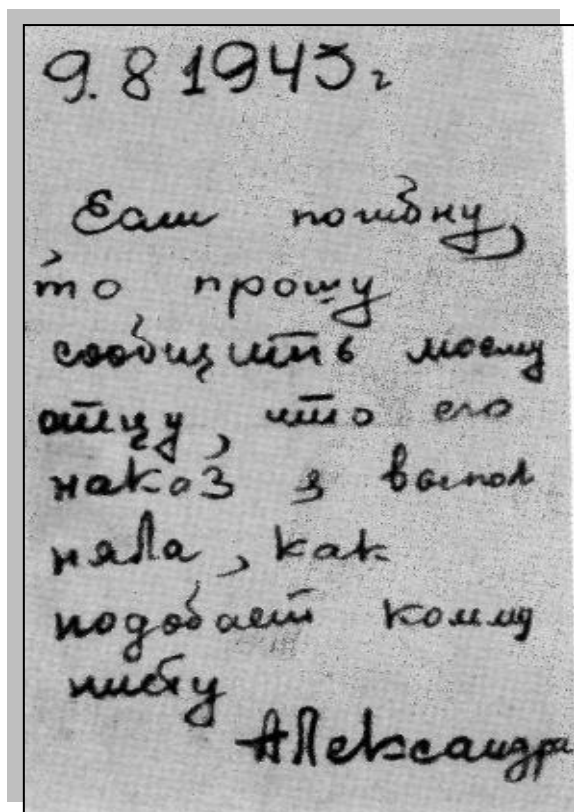 9.8 1943 г
Если погибну,
то прошу
сообщить моему
отцу, что его
наказ я выпол
няла, как
подобает комму
нисту
Александра